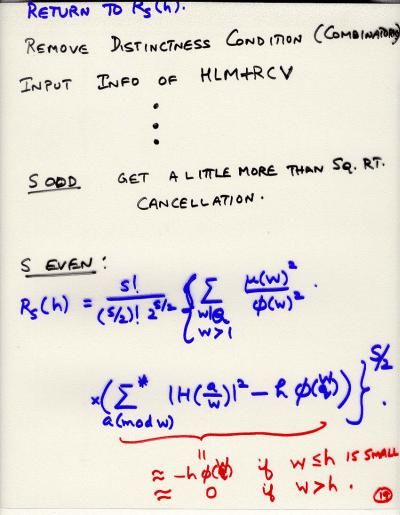 RETURN TO R_s(h).
REMOVE DISTINCTNESS CONDITION (COMBINATORICS
INPUT INFO OF HLM+RCV
S ODD GET A LITTLE MORE THAN SQ. RT.
CANCELLATION.
S EVEN:
R_s(h) = s! / ((s/2)! 2^{s/2}) { Σ_{w|Q, w>1} μ(w)^2 / φ(w)^2 .
×( Σ*_{a(mod w)} |H(a/w)|^2 − h φ(w) ) }^{s/2} .
≈ −h φ(w) if w ≤ h IS SMALL
≈ 0 if w > h .
19